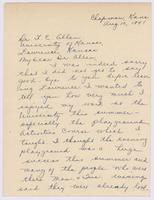 Chapman, Kans.
Aug. 10, 1941
Dr. F. C. Allen
University of Kansas,
Lawrence, Kansas
My dear Dr. Allen,
I was indeed sorry
that I did not get to say
good bye to you before
leaving Lawrence. I wanted to
tell you how very much I
enjoyed my work at the
University this summer -
especially the playground
activities course which I
taught. I thought the evening
playground was a huge
success this summer and
many of the people who were
there
said they were already